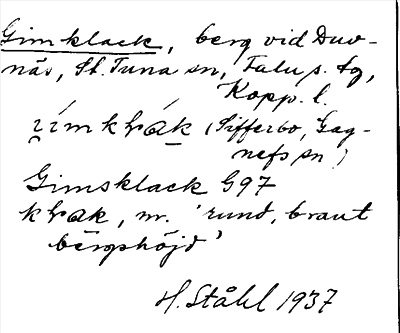 Gimklack, berg vid Duv-
näs, St. Tuna sn, Falu s. tg,
Kopp. l.
(Sifferbo, Gag-
nefs sn)
Gimsklack G97
m. 'rund, brant
bergshöjd'
H. Ståhl 1937